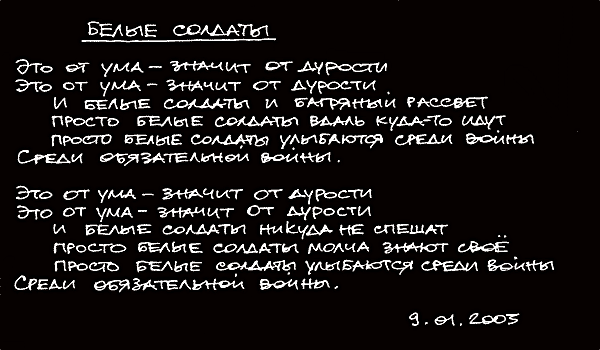 БЕЛЫЕ СОЛДАТЫ
ЭТО ОТ УМА – ЗНАЧИТ ОТ ДУРОСТИ
ЭТО ОТ УМА – ЗНАЧИТ ОТ ДУРОСТИ.
И БЕЛЫЕ СОЛДАТЫ И БАГРЯНЫЙ РАССВЕТ
ПРОСТО БЕЛЫЕ СОЛДАТЫ ВДАЛЬ КУДА-ТО ИДУТ
ПРОСТО БЕЛЫЕ СОЛДАТЫ УЛЫБАЮТСЯ СРЕДИ ВОЙНЫ
СРЕДИ ОБЯЗАТЕЛЬНОЙ ВОЙНЫ.
ЭТО ОТ УМА – ЗНАЧИТ ОТ ДУРОСТИ
ЭТО ОТ УМА – ЗНАЧИТ ОТ ДУРОСТИ
И БЕЛЫЕ СОЛДАТЫ НИКУДА НЕ СПЕШАТ
ПРОСТО БЕЛЫЕ СОЛДАТЫ МОЛЧА ЗНАЮТ СВОЁ.
ПРОСТО БЕЛЫЕ СОЛДАТЫ УЛЫБАЮТСЯ СРЕДИ ВОЙНЫ
СРЕДИ ОБЯЗАТЕЛЬНОЙ ВОЙНЫ.
9.01.2005